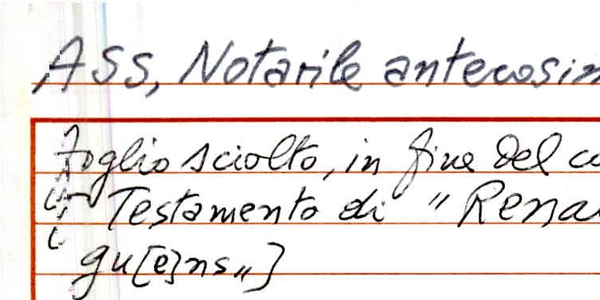 Ass, Notarile antecosim
foglio sciolto, in fine del co
Testamento di "Rena
gu[e]ns„]